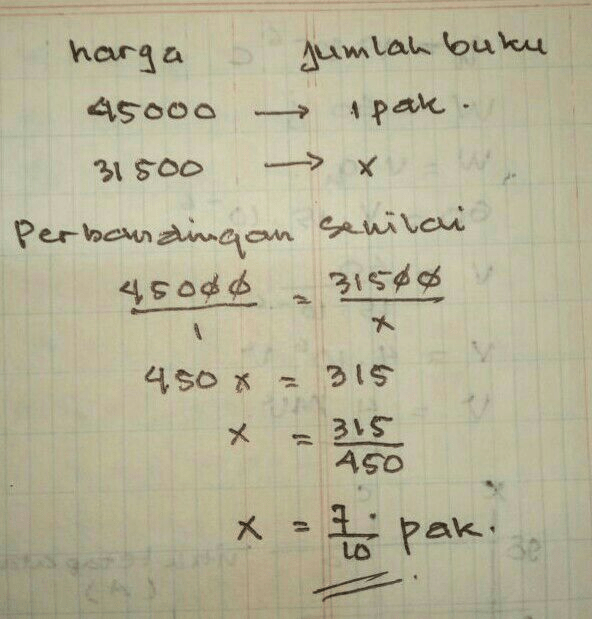 harga jumlah buku
45000 → 1 pak.
31500 → x
Perbandingan senilai
45000/1 = 31500/x
450 x = 315
x = 315/450
x = 7/10 pak.